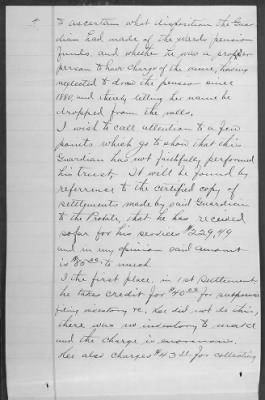 to ascertain what disposition the Guar
dian had made of the wards pension
funds, and whether he was a proper
person to have charge of the same, having
neglected to draw the pension since
1880, and thereby letting her name be
dropped from the rolls.
I wish to call attention to a few
points which go to show that this
Guardian has not faithfully performed
his trust. It will be found by
referrence to the certified copy of
settlements made by said Guardian
to the Probate, that he has received
so far for his services $229,49
and in my opinion said amount
is $85.00 to much.
I the first place, in 1st settlement
he takes credit for $40.00 for
being inventory &c, he did not do this,
there was no inventory to make
and the charge is enormous.
He also charges $43 for collecting